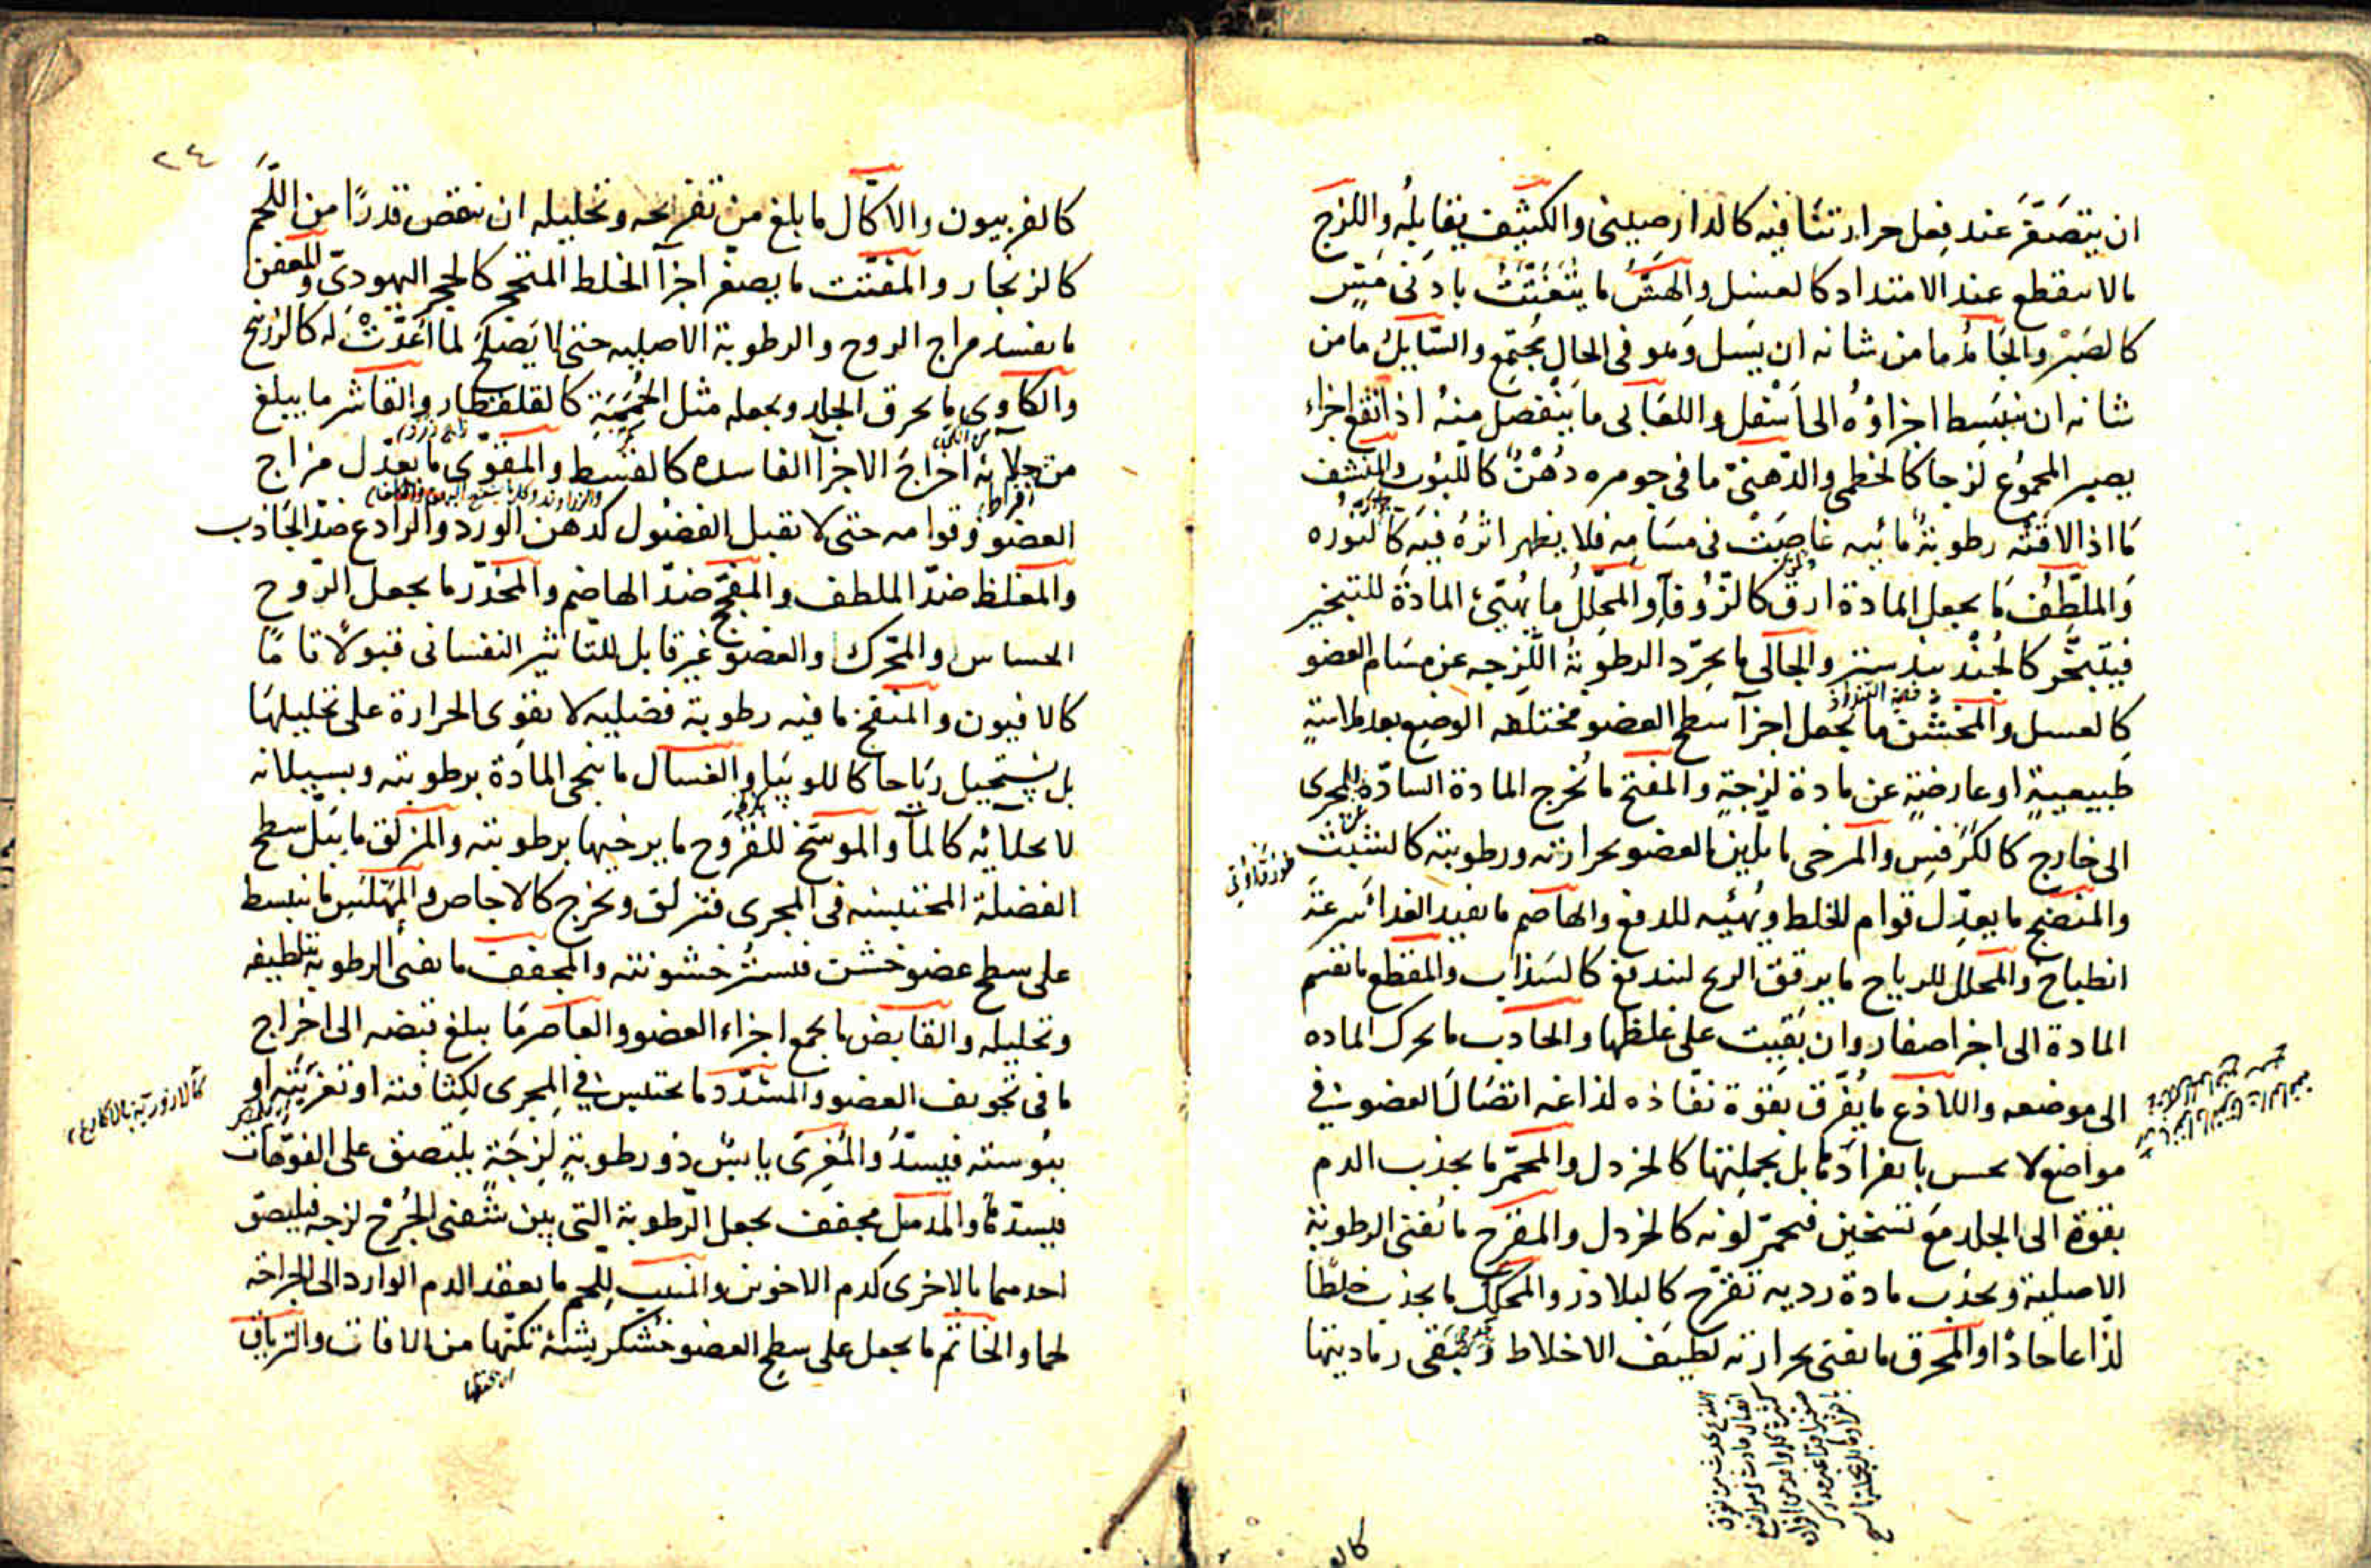 ان يتصَغّر عند فِعل حرارتنا فيه كالدارصيني والكثيف يقابلُه واللزج
مالا ينقطع عند الامتداد كالعسل والهشّ ما يتفتّتُ بادنى مَسٍّ
كالصَبْر والجَامدُ ما من شانه ان يسيل وهو فى الحال مجتمع والسّايلُ ما من
شانه ان ينبَسِط اجزاؤه الى اسْفل واللعابى ما يَنْفصل منهُ اذا نُقع اجزاء
يصير المجموع لزجا كالخطمى والدّهنىّ ما فى جوهره دُهْنٌ كاللّبُوب والمنشف
مَا اذا لاقَتْه رطوبةٌ مائيه غاصَتْ فى مسَامِه فلا يظهر اثرهُ فيه كالنوره
وَالملَطّف مَا يجعل المادة ارقّ كالزّوفا والمحلّلُ ما يُهيّئُ المادة للتبخير
فيتبخّر كالجُنْد بيدستر والجالى ما يجرّد الرطوبةُ اللّزجه عن مسَام العضو
كالعسل والمخشّن ما يجعل اجزآ سطح العضو مختلفه الوضع بعد ملاسةٍ
طبيعيةٍ او عارضةٍ عن مادة لزجةٍ والمفتح ما تُخرج المادة السادّة للمجرى
الى خارج كالكرَفس والمرخى ما يليّن العضو بحرارته ورطوبته كالشبثّ
والمنضج ما يعدّل قوام الخلط ويُهيّئه للدفع والهاضم ما يفيد الغدا سُرعتَ
انطباخ والمحلل للرياح ما يرقق الريح ليندفع كالسَذاب والمقطع ما تقسم
المادة الى اجزا صغار وان بقيت على غلظها والجاذب ما يحرك الماده
الى موضعه واللاذع ما يُفرّق بقوة نفاذه لذاعه اتصَال العضو فى
مواضع لا يحس بانفرادها بل بجملتها كالخردل والمحمّر ما يجذب الدم
بقوة الى الجلد مع تسخين فيحمرّ لونه كالخردل والمقرح ما تُفنى الرطوبة
الاصلية ويجذب مادة رديه تقرّح كالبلادر والمحكّك ما يجذب خلطًا
لذّاعا حادًا والمحرق ما يفنى بحرارته لطيفَ الاخلاط وتبقى رماديتها
٢٤
كالفربيون والاكّال ما بلغ من تقريحه وتحليله ان ينقص قدرًا من اللّحم
كالزنجار والمفتّت ما يصغّر اجزآ الخلط المتحجّر كالحجر اليهودىّ والمعفن
ما يفسد مزاج الروح والرطوبة الاصليه حتى لا يَصْلح لما اُعِدَّتْ له كالزرنيخ
والكاوى ما يحرق الجلد ويجعله مثل الحُمَمَةِ كالقلقطار والقاشر ما يبلغ
من جلائه اخراجَ الاجزآ الفاسده كالقسط والمقوّى ما يعدّل مزاج
العضو وقوامه حتى لا تقبل الفضول كدهن الورد والرادع ضدّ الجَاذب
والمغلظ ضدّ الملطف والمفجّج ضدّ الهاضم والمخدّر ما يجعل الرّوح
الحساس والمحرّك والعضو غير قابل للتاثير النفسانى قبولًا تامًا
كالافيون والمنفخ ما فيه رطوبة فضليه لا تقوى الحرارة على تحليلها
بل يستحيل ريَاحا كاللوبيا والغسال ما ينحى المادة برطوبته وبسيلانه
لا بجلآئه كالمآ والموسّخ للقروح ما يرخيها برطوبته والمزلق ما يبلّ سطح
الفضلة المحتبسه فى المجرى فتزلق ويخرج كالاجاص والمملّس ما ينبسط
على سطح عضو خشن فتستُر خشونته والمجفف ما يفنى الرطوبة بتلطيفه
وتحليله والقابض ما يجمع اجزاء العضو والعاصر مَا يبلغ قبضه الى اخراج
ما فى تجويف العضو والمسَدّد ما يحتبس فى المجرى لكِثافته او تغريَتِه او
يبوسته فيسدُّ والمُغرى يابسٌ ذو رطوبةٍ لزِجَةٍ يلتصق على الفوّهات
فيسدّها والمدمل مجفف يجعل الرّطوبة التى بين شفتى الجُرْح لزجه فيلصق
احدهما بالاخرى كدم الاخوين والمنبت للّحم ما يعقد الدم الوارد الى الجراحه
لحما والخاتم ما يجعل على سطح العضو خُشكريشةً تكنّها من الافات والترياق